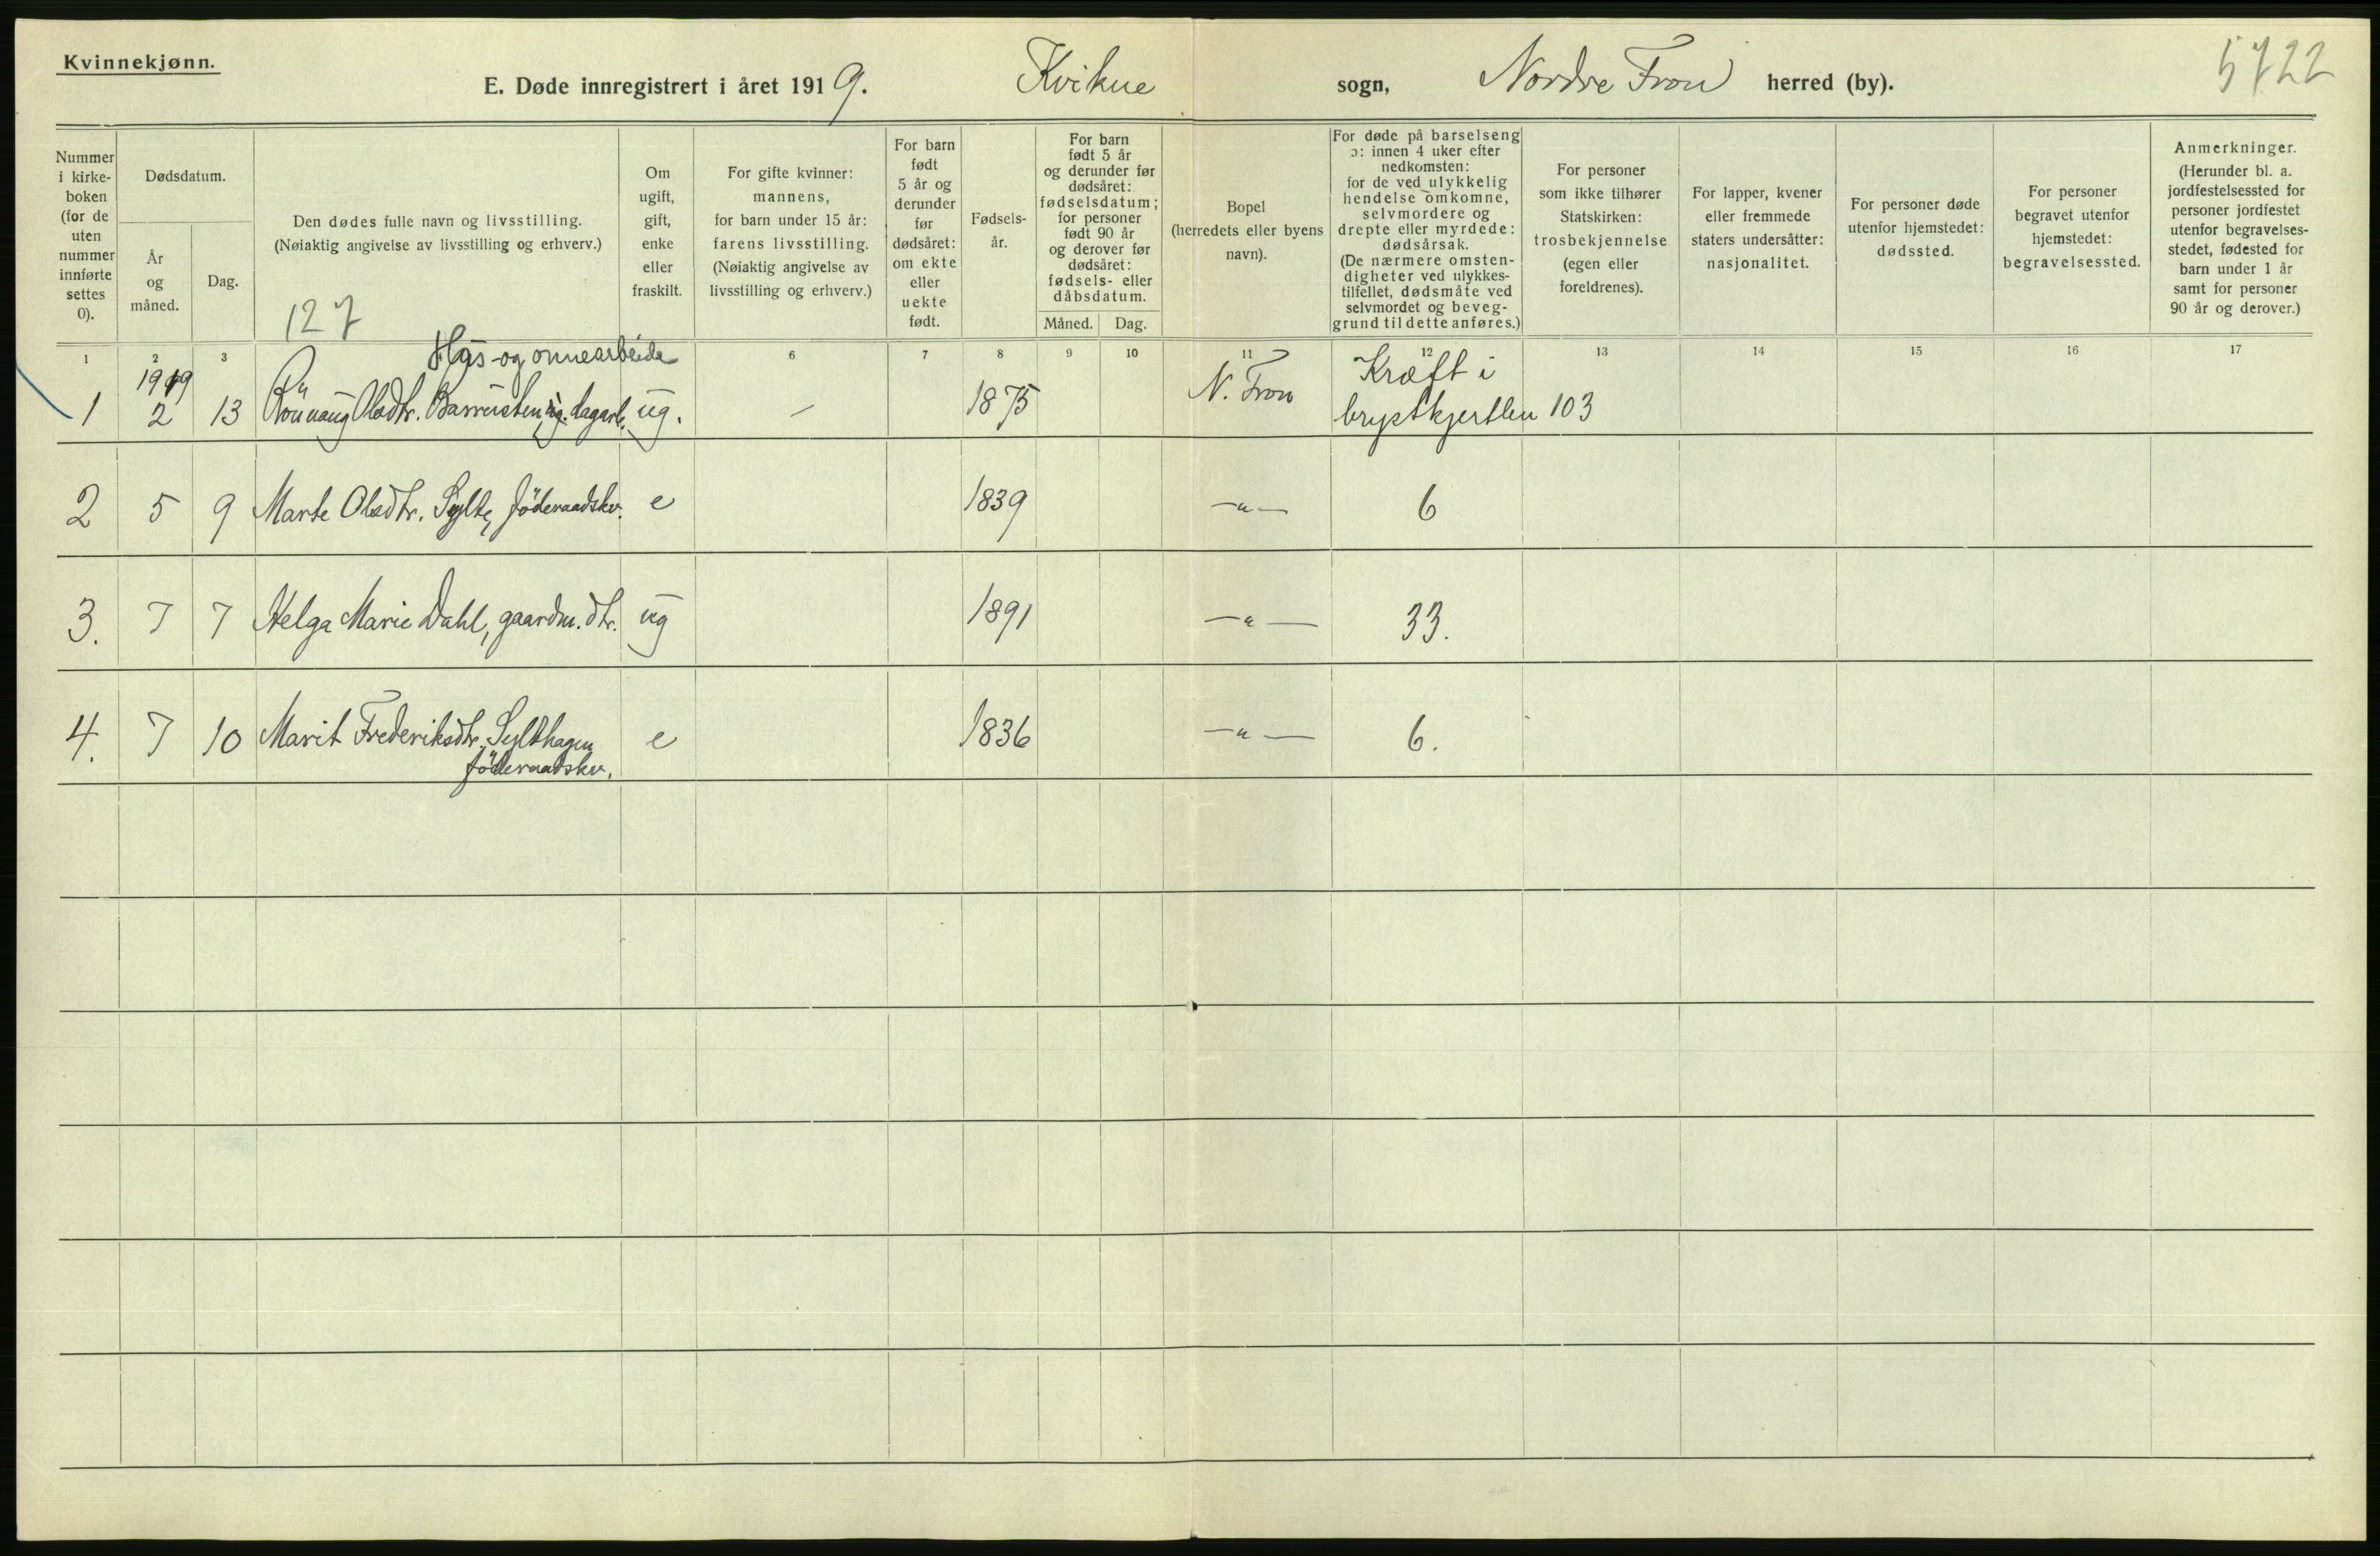 Kvinnekjønn.
E. Døde innregistrert i året 1919. Kvikne sogn, Nordre Fron herred (by). 5722
Nummer i kirke-boken (for de uten nummer innførte settes 0).
Dødsdatum.
År og måned.
Dag.
Den dødes fulle navn og livsstilling.
(Nøiaktig angivelse av livsstilling og erhverv.)
127
Om ugift, gift, enke eller fraskilt.
For gifte kvinner: mannens, for barn under 15 år: farens livsstilling. (Nøiaktig angivelse av livsstilling og erhverv.)
For barn født 5 år og derunder før dødsåret: om ekte eller uekte født.
Fødsels-år.
For barn født 5 år og derunder før dødsåret: fødselsdatum; for personer født 90 år og derover før dødsåret: fødsels- eller dåbsdatum.
Måned. Dag.
Bopel (herredets eller byens navn).
For døde på barselseng ɔ: innen 4 uker efter nedkomsten: for de ved ulykkelig hendelse omkomne, selvmordere og drepte eller myrdede: dødsårsak. (De nærmere omsten-digheter ved ulykkes-tilfellet, dødsmåte ved selvmordet og beveg-grund til dette anføres.)
For personer som ikke tilhører Statskirken: trosbekjennelse (egen eller foreldrenes).
For lapper, kvener eller fremmede staters undersåtter: nasjonalitet.
For personer døde utenfor hjemstedet: dødssted.
For personer begravet utenfor hjemstedet: begravelsessted.
Anmerkninger. (Herunder bl. a. jordfestelsessted for personer jordfestet utenfor begravelses-stedet, fødested for barn under 1 år samt for personer 90 år og derover.)
1 2 3 6 7 8 9 10 11 12 13 14 15 16 17
Hus- og onnearbeide
1919
1 2 13 Rönnaug Olsdtr. Barrusten, ug. dagarb. ug. — 1875 N. Fron Kræft i
brystkjertlen 103
2 5 9 Marte Olsdtr. Sylte, föderaadskv. e 1839 —"— 6
3. 7 7 Helga Marie Dahl, gaardm. dtr. ug 1891 —"— 33.
4. 7 10 Marit Frederiksdtr. Sylthagen e 1836 —"— 6.
föderaadskv.